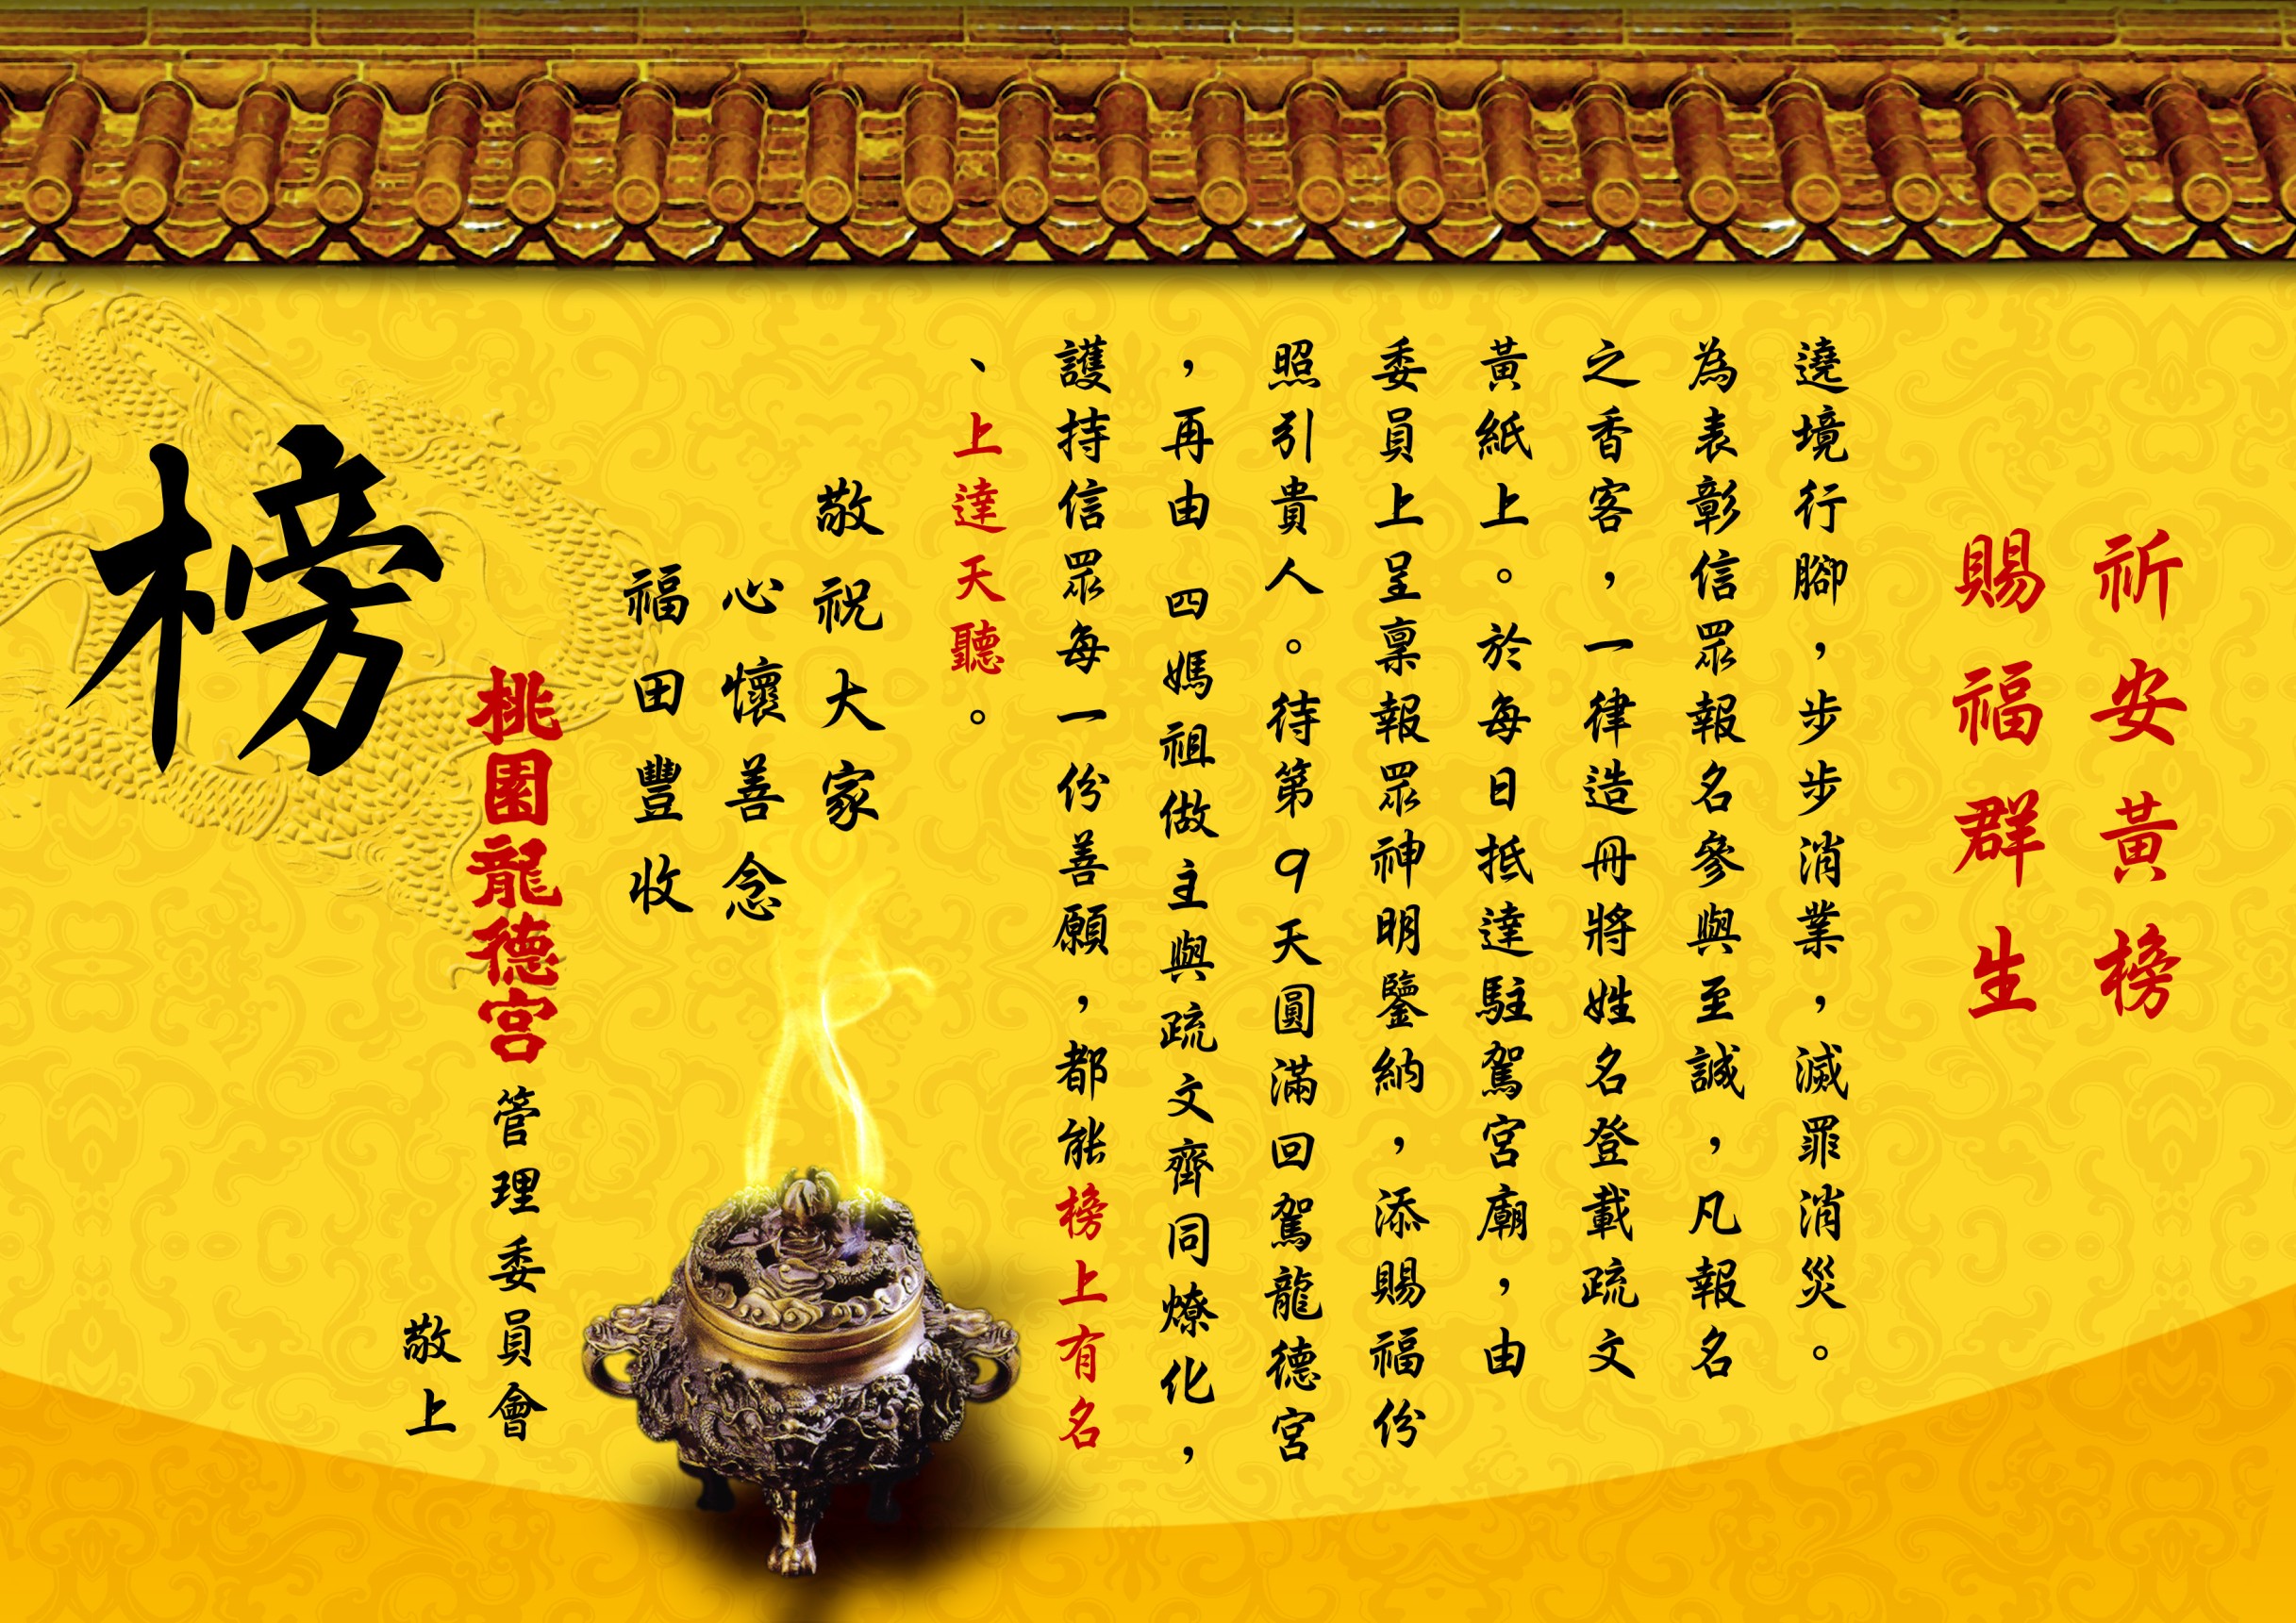 祈安黃榜
賜福群生
遶境行腳，步步消業，滅罪消災。
為表彰信眾報名參與至誠，凡報名
之香客，一律造冊將姓名登載疏文
黃紙上。於每日抵達駐駕宮廟，由
委員上呈稟報眾神明鑒納，添賜福份
照引貴人。待第9天圓滿回駕龍德宮
，再由 四媽祖做主與疏文齊同燎化，
護持信眾每一份善願，都能榜上有名
、上達天聽。
敬祝大家
心懷善念
福田豐收
桃園龍德宮管理委員會
敬上
榜